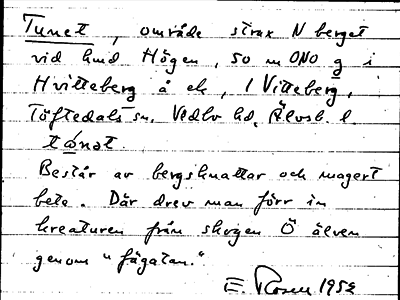 Tunet, område strax N berget
vid lund Högen, 50 m ONO g i
Hvitteberg å ek, 1 Vitteberg,
Töftedals sn, Vedbo hd, Älvsb. l.
tønət.
Består av bergsknattar och magert
bete. Där drev man förr in
kreaturen från skogen Ö älven
genom "fägatan."
E. Rosell 1952